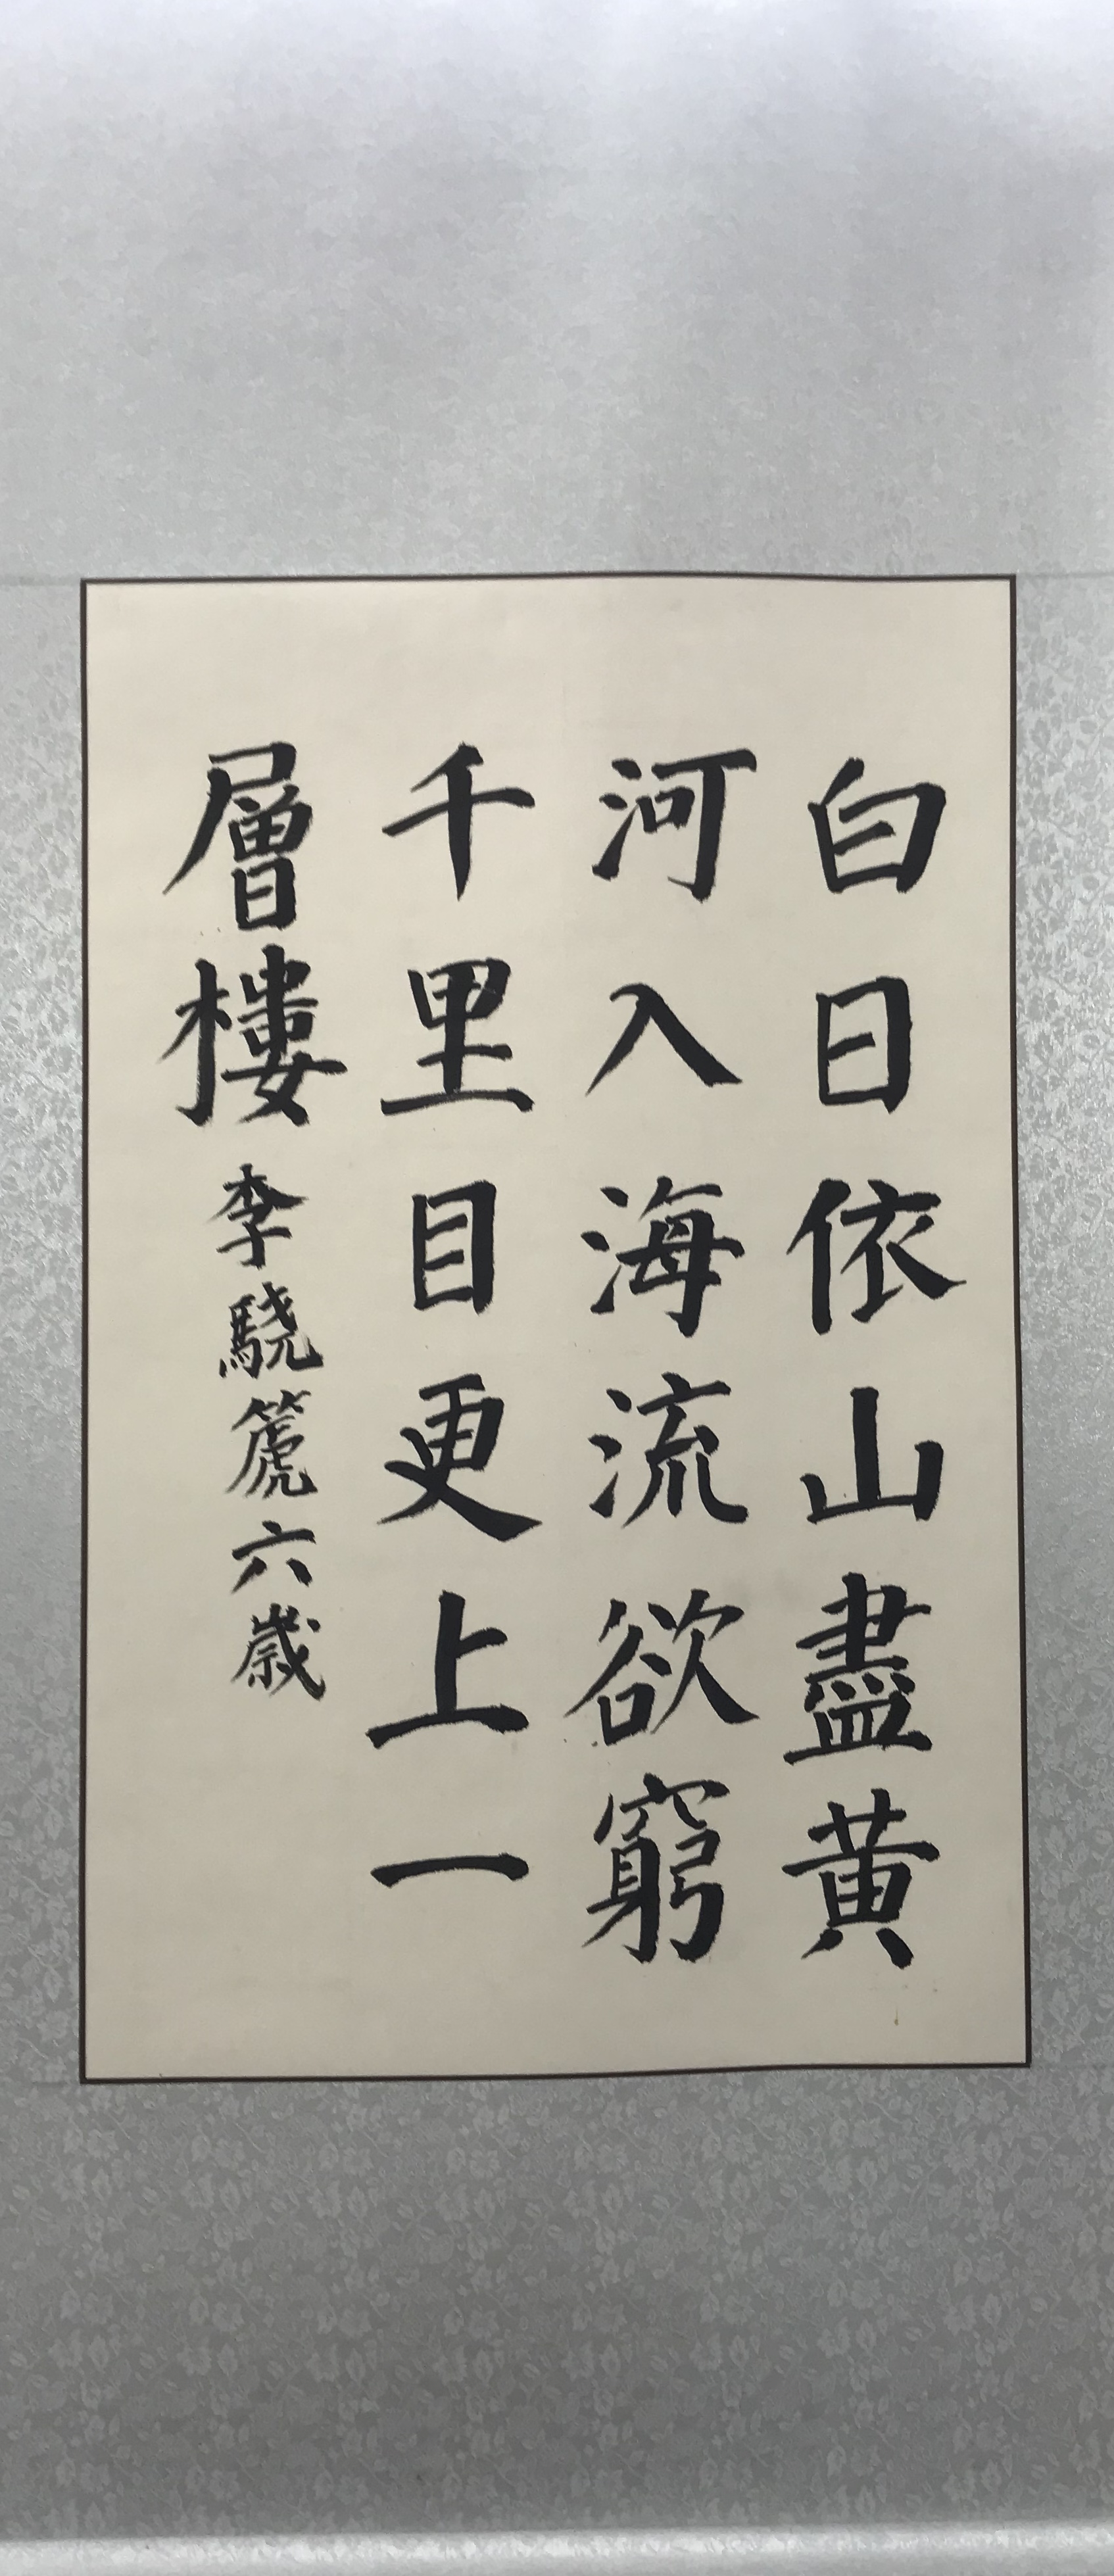 白日依山盡黃
河入海流欲窮
千里目更上一
層樓 李驍篪六歲